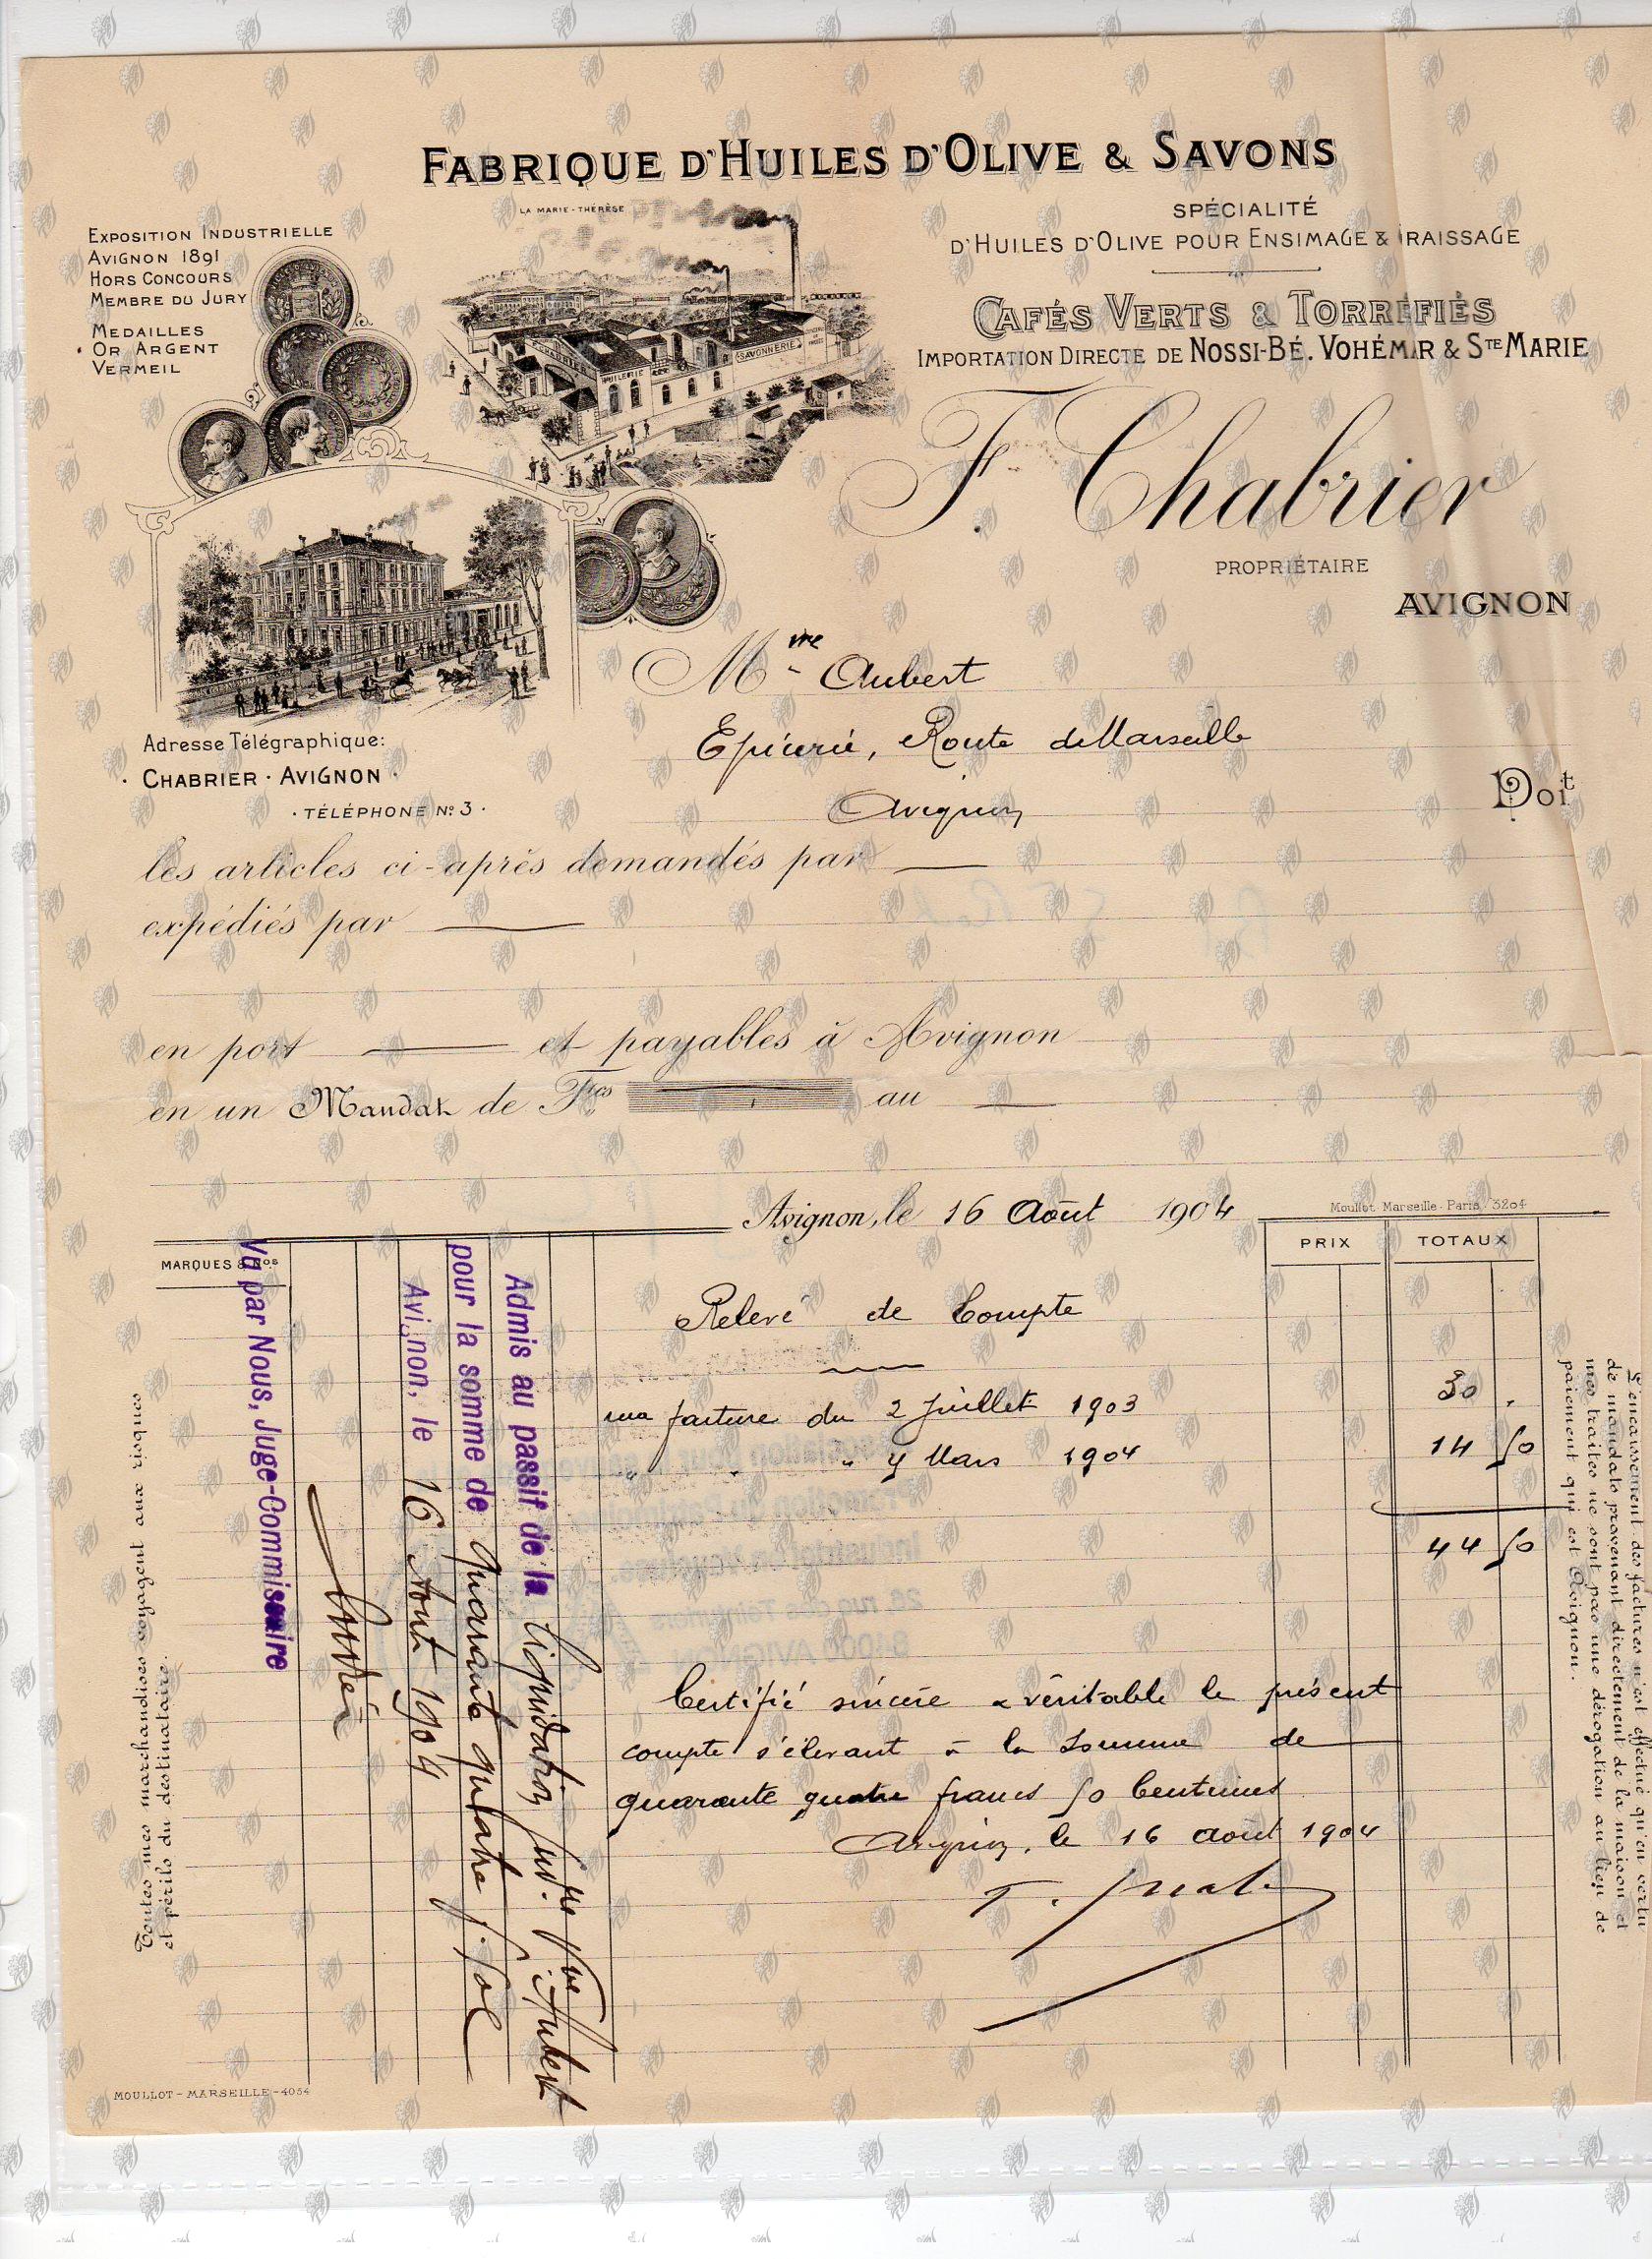 FABRIQUE D'HUILES D'OLIVE & SAVONS
LA MARIE-THÉRÈSE
EXPOSITION INDUSTRIELLE
AVIGNON 1891
HORS CONCOURS
MEMBRE DU JURY
MEDAILLES
OR ARGENT
VERMEIL
SPÉCIALITÉ
D'HUILES D'OLIVE POUR ENSIMAGE & GRAISSAGE
CAFÉS VERTS & TORREFIÉS
IMPORTATION DIRECTE DE NOSSI-BÉ. VOHÉMAR & STE MARIE
HUILERIE
SAVONNERIE
F. Chabrier
PROPRIÉTAIRE
AVIGNON
Mme Aubert
Epicerie, Route de Marseille
Avignon
Doit
Adresse Télégraphique:
· CHABRIER · AVIGNON ·
· TÉLÉPHONE No 3 ·
les articles ci-après demandés par
expédiés par
en port et payables à Avignon
en un Mandat de Frcs au
Avignon, le 16 Août 1904
Moullot Marseille-Paris 3204
MARQUES & Nos
PRIX
TOTAUX
Relevé de Compte
ma facture du 2 Juillet 1903 30 .
" " " 4 Mars 1904 14 50
44 50
Certifié sincère & véritable le présent
compte s'élevant à la somme de
quarante quatre francs 50 Centimes
Avignon, le 16 août 1904
Admis au passif de la liquidation Jud.re Vve Aubert
pour la somme de quarante quatre f. 50c
Avignon, le 16 Aout 1904
Vu par Nous, Juge-Commissaire
Toutes mes marchandises voyagent aux risques
et périls du destinataire.
L'encaissement des factures n'est effectué qu'en vertu
de mandats provenant directement de la maison et
mes traites ne sont pas une dérogation au lieu de
paiement qui est Avignon.
MOULLOT-MARSEILLE-4054